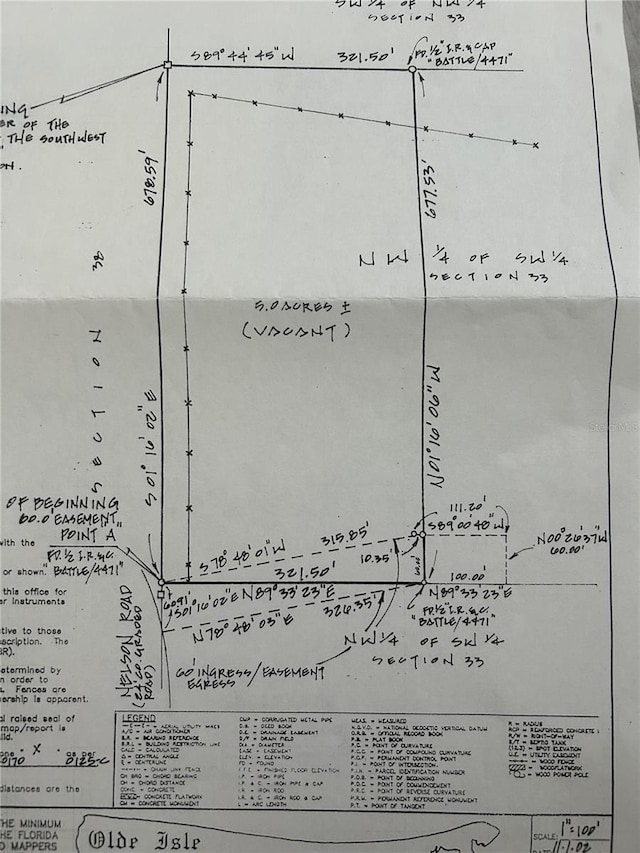 SW 1/4 OF NW 1/4
SECTION 33
S89°44'45"W 321.50'
FD. 1/2" I.R. & CAP
"BATTLE/4471"
ING
ER OF THE
THE SOUTHWEST
678.59'
677.53'
NW 1/4 OF SW 1/4
SECTION 33
5.0 ACRES ±
(VACANT)
SECTION
S01°16'02"E
N01°16'06"W
OF BEGINNING
60.0' EASEMENT
POINT A
FD. 1/2 I.R. & C.
"BATTLE/4471"
111.20'
S89°00'48"W
N00°26'37"W
60.00'
315.85'
S78°48'01"W
10.35'
321.50'
100.00'
S01°16'02"E N89°33'23"E
N89°33'23"E
FD. 1/2" I.R. & C.
"BATTLE/4471"
326.35'
N78°48'03"E
NW 1/4 OF SW 1/4
SECTION 33
60' INGRESS/EASEMENT
EGRESS
NELSON ROAD
ROAD)
with the
or shown.
this office for
or instruments
tive to those
scription. The
BR).
etermined by
n order to
Fences are
ership is apparent.
al raised seal of
map/report is
lid.
X as per
0170 0125-C
distances are the
LEGEND
A/C = AIR CONDITIONER
B.R. = BEARING REFERENCE
B.R.L. = BUILDING RESTRICTION LINE
CALC = CALCULATED
= CENTRAL ANGLE
= CENTERLINE
= CHAIN LINK FENCE
CH BRG = CHORD BEARING
CH = CHORD DISTANCE
CONC = CONCRETE
= CONCRETE FLATWORK
CM = CONCRETE MONUMENT
CMP = CORRUGATED METAL PIPE
D.B. = DEED BOOK
D.E. = DRAINAGE EASEMENT
D/F = DRAIN FIELD
DIA = DIAMETER
EASE = EASEMENT
ELEV. = ELEVATION
FD = FOUND
F.F.E. = FINISHED FLOOR ELEVATION
I.P. = IRON PIPE
I.P. & C. = IRON PIPE & CAP
I.R. = IRON ROD
I.R. & C. = IRON ROD & CAP
L = ARC LENGTH
MEAS. = MEASURED
N.G.V.D. = NATIONAL GEODETIC VERTICAL DATUM
O.R.B. = OFFICIAL RECORD BOOK
P.B. = PLAT BOOK
P.C. = POINT OF CURVATURE
P.C.C. = POINT OF COMPOUND CURVATURE
P.C.P. = PERMANENT CONTROL POINT
P.I. = POINT OF INTERSECTION
P.I.N. = PARCEL IDENTIFICATION NUMBER
P.O.B. = POINT OF BEGINNING
P.O.C. = POINT OF COMMENCEMENT
P.R.C. = POINT OF REVERSE CURVATURE
P.R.M. = PERMANENT REFERENCE MONUMENT
P.T. = POINT OF TANGENT
R = RADIUS
RCP = REINFORCED CONCRETE
R/W = RIGHT-OF-WAY
S/T = SEPTIC TANK
(12.3) = SPOT ELEVATION
U.E. = UTILITY EASEMENT
= WOOD FENCE
= WOOD FLATWORK
= WOOD POWER POLE
THE MINIMUM
HE FLORIDA
D MAPPERS
Olde Isle
SCALE: 1"=100'
DATE: 11-1-02